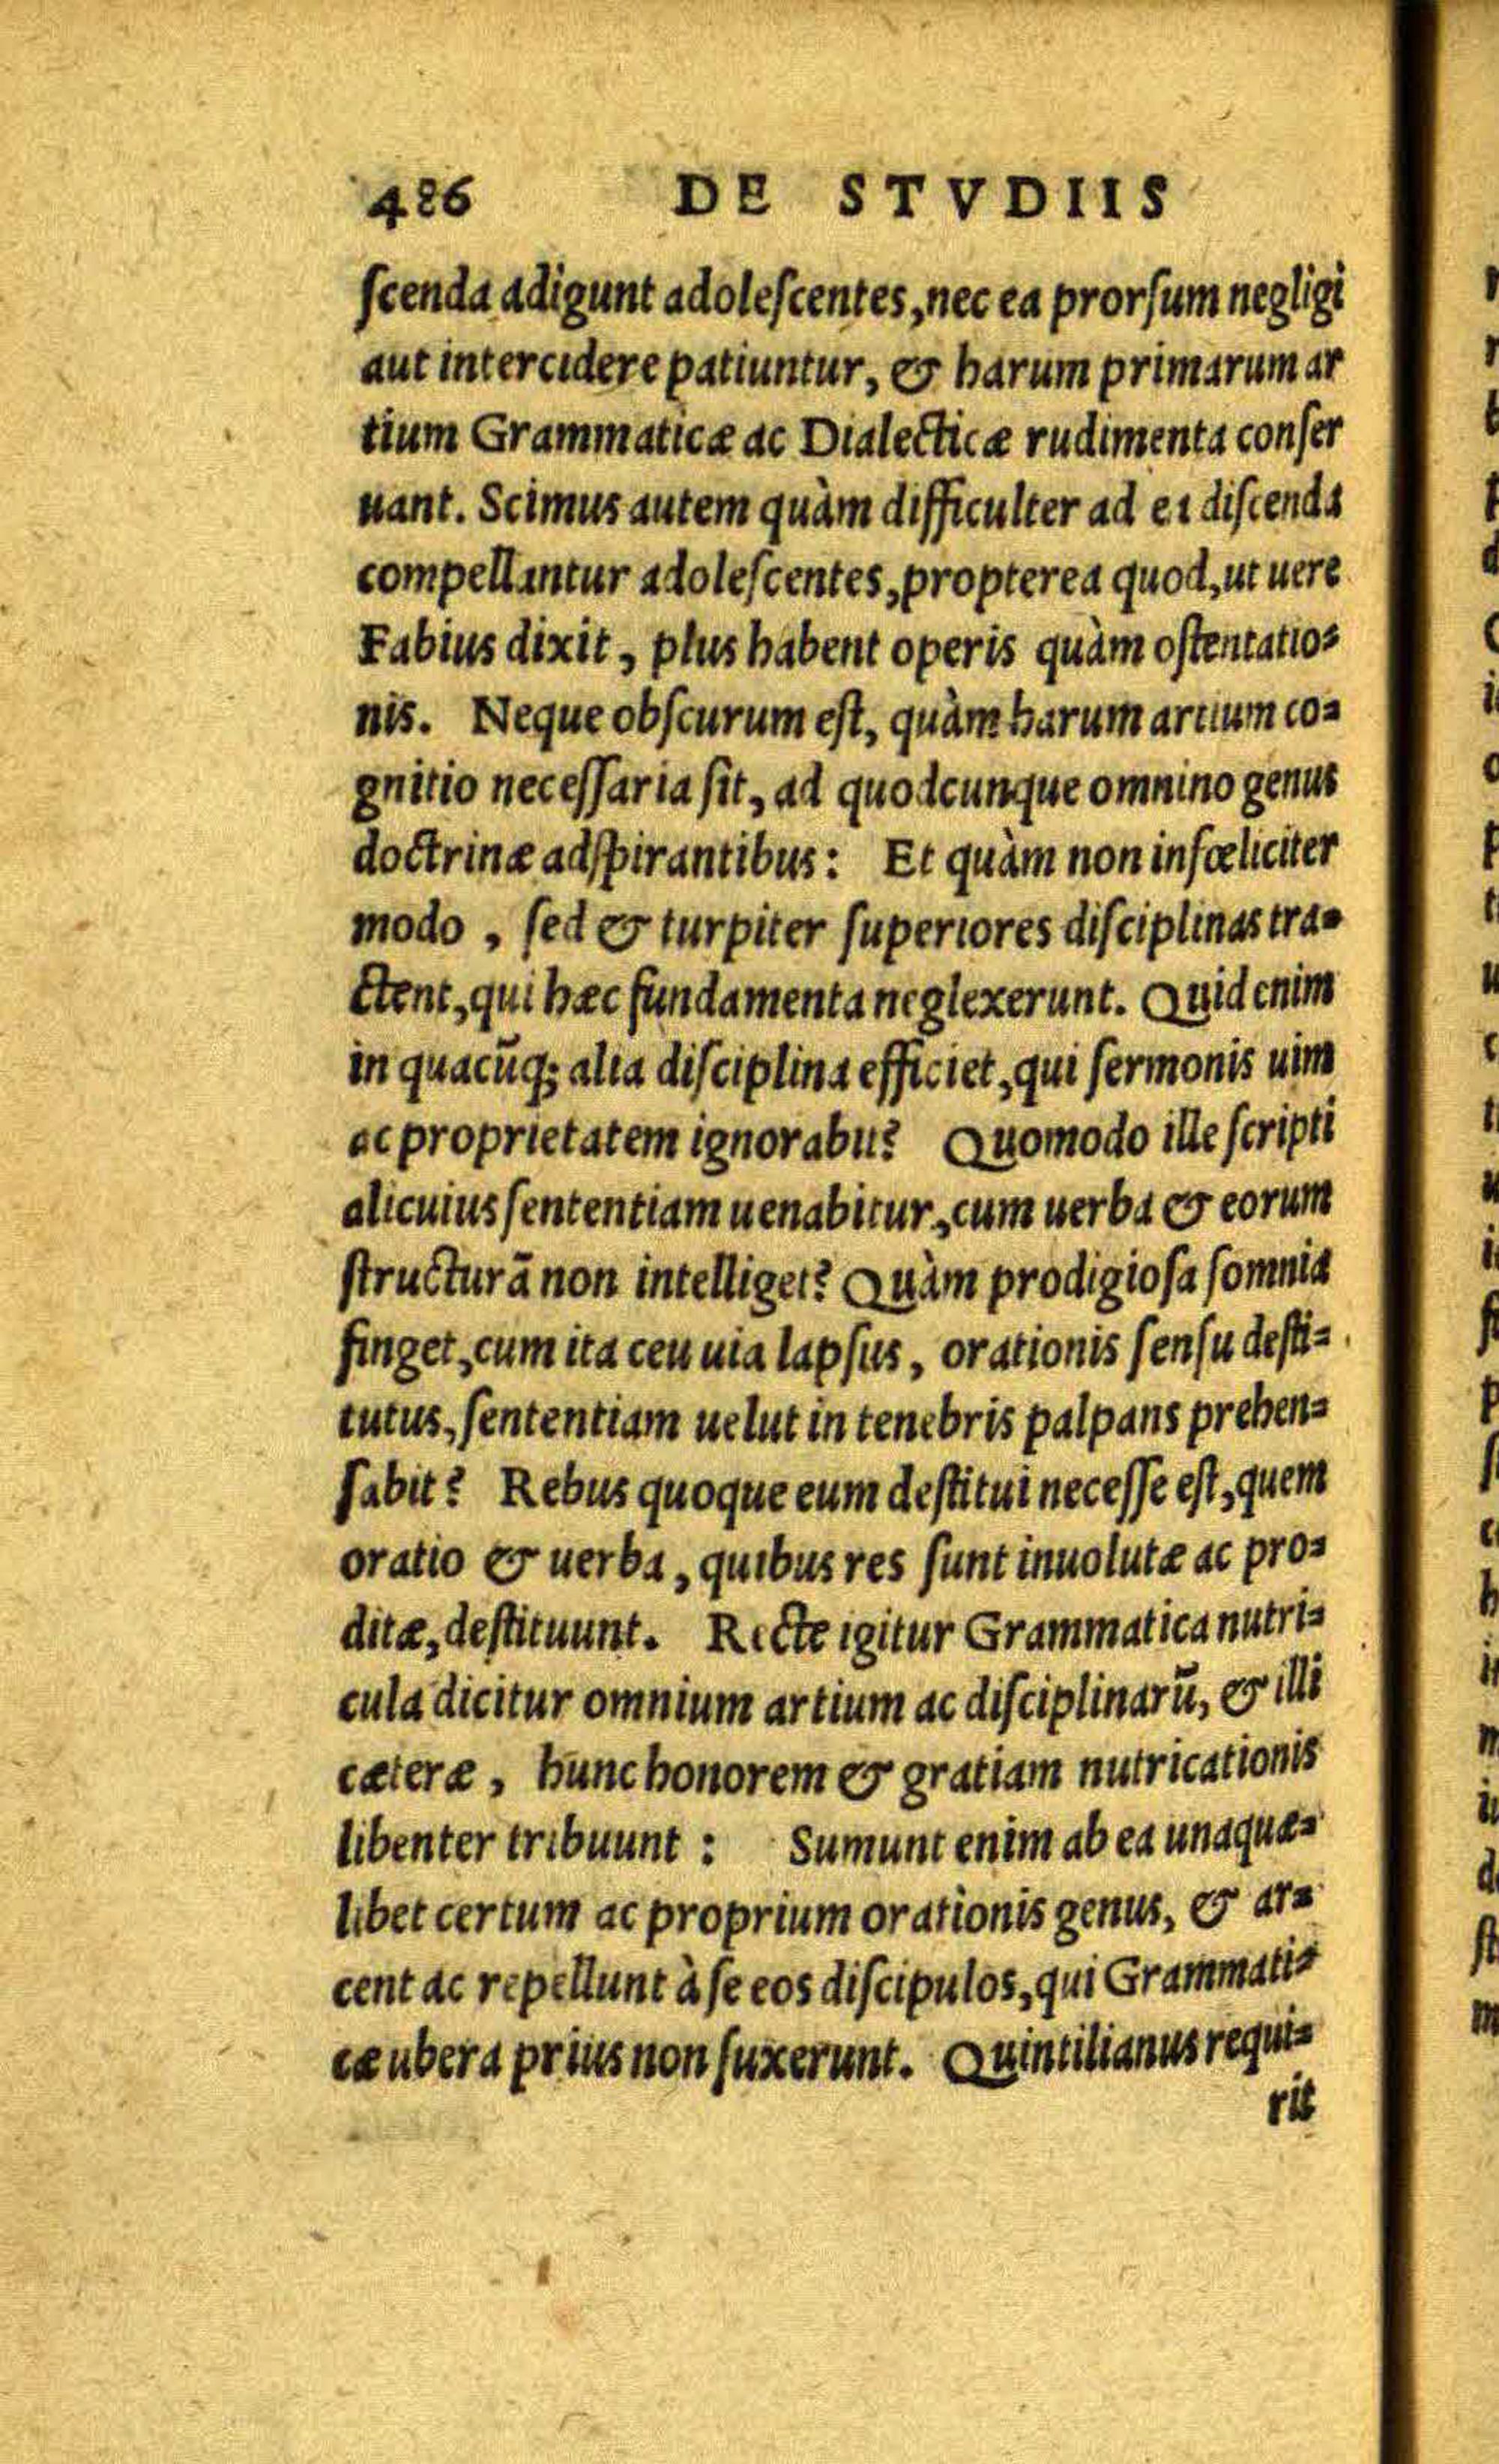 486 DE STVDIIS
ſcenda adigunt adoleſcentes, nec ea prorſum negligi
aut intercidere patiuntur, & harum primarum ar
tium Grammaticæ ac Dialecticæ rudimenta conſer
uant. Scimus autem quàm difficulter ad ea diſcenda
compellantur adoleſcentes, propterea quod, ut uere
Fabius dixit, plus habent operis quàm oſtentatio⸗
nis. Neque obſcurum eſt, quàm harum artium co⸗
gnitio neceſſaria ſit, ad quodcunque omnino genus
doctrinæ adſpirantibus: Et quàm non infœliciter
modo, ſed & turpiter ſuperiores diſciplinas tra⸗
ctent, qui hæc fundamenta neglexerunt. Quid enim
in quacūq; alia diſciplina efficiet, qui ſermonis uim
ac proprietatem ignorabit? Quomodo ille ſcripti
alicuius ſententiam uenabitur, cum uerba & eorum
ſtructurā non intelliget? Quàm prodigioſa ſomnia
finget, cum ita ceu uia lapſus, orationis ſenſu deſti⸗
tutus, ſententiam uelut in tenebris palpans prehen⸗
ſabit? Rebus quoque eum deſtitui neceſſe eſt, quem
oratio & uerba, quibus res ſunt inuolutæ ac pro⸗
ditæ, deſtituunt. Recte igitur Grammatica nutri⸗
cula dicitur omnium artium ac diſciplinarū, & illi
cæteræ, hunc honorem & gratiam nutricationis
libenter tribuunt: Sumunt enim ab ea unaquæ⸗
libet certum ac proprium orationis genus, & ar⸗
cent ac repellunt à ſe eos diſcipulos, qui Grammati⸗
cæ ubera prius non ſuxerunt. Quintilianus requi⸗
rit